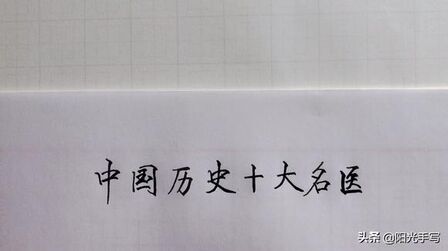 中国历史十大名医
头条 @阳光手写